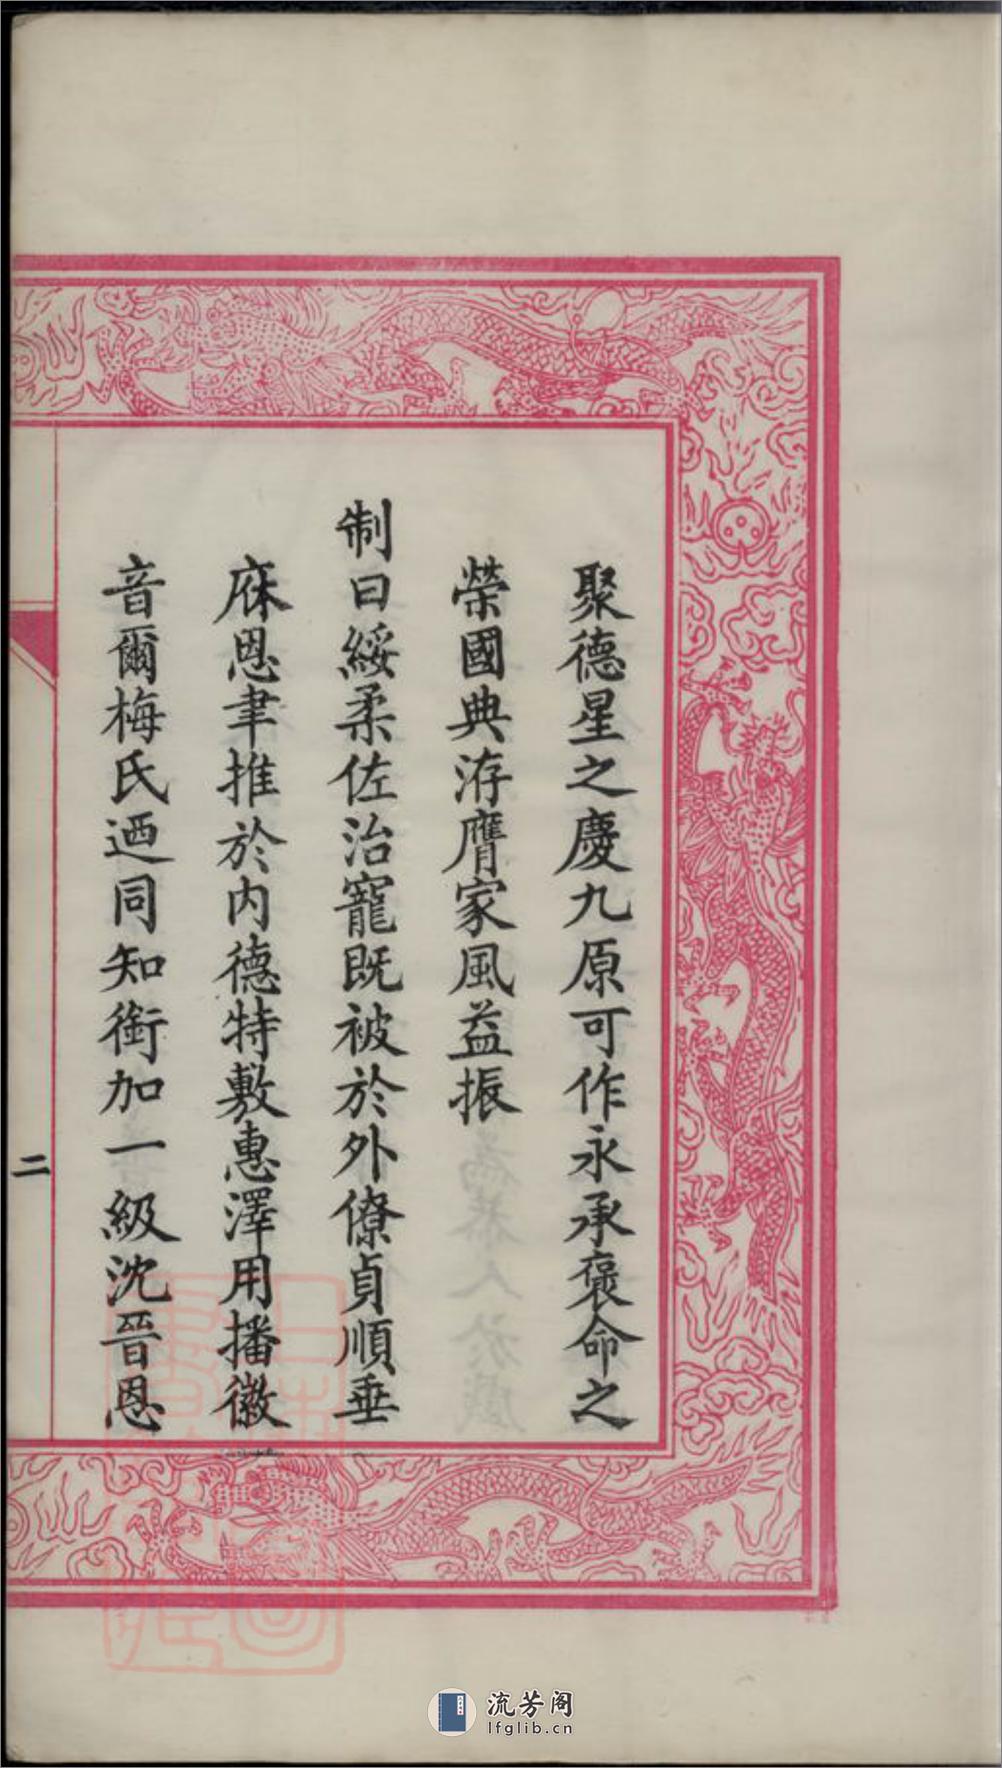 聚德星之慶九原可作永承褒命之
榮國典洊膺家風益振
制曰綏柔佐治寵既被於外僚貞順垂
庥恩聿推於内德特敷惠澤用播徽
音爾梅氏迺同知銜加一級沈晉恩
二
流芳阁
lfglib.cn